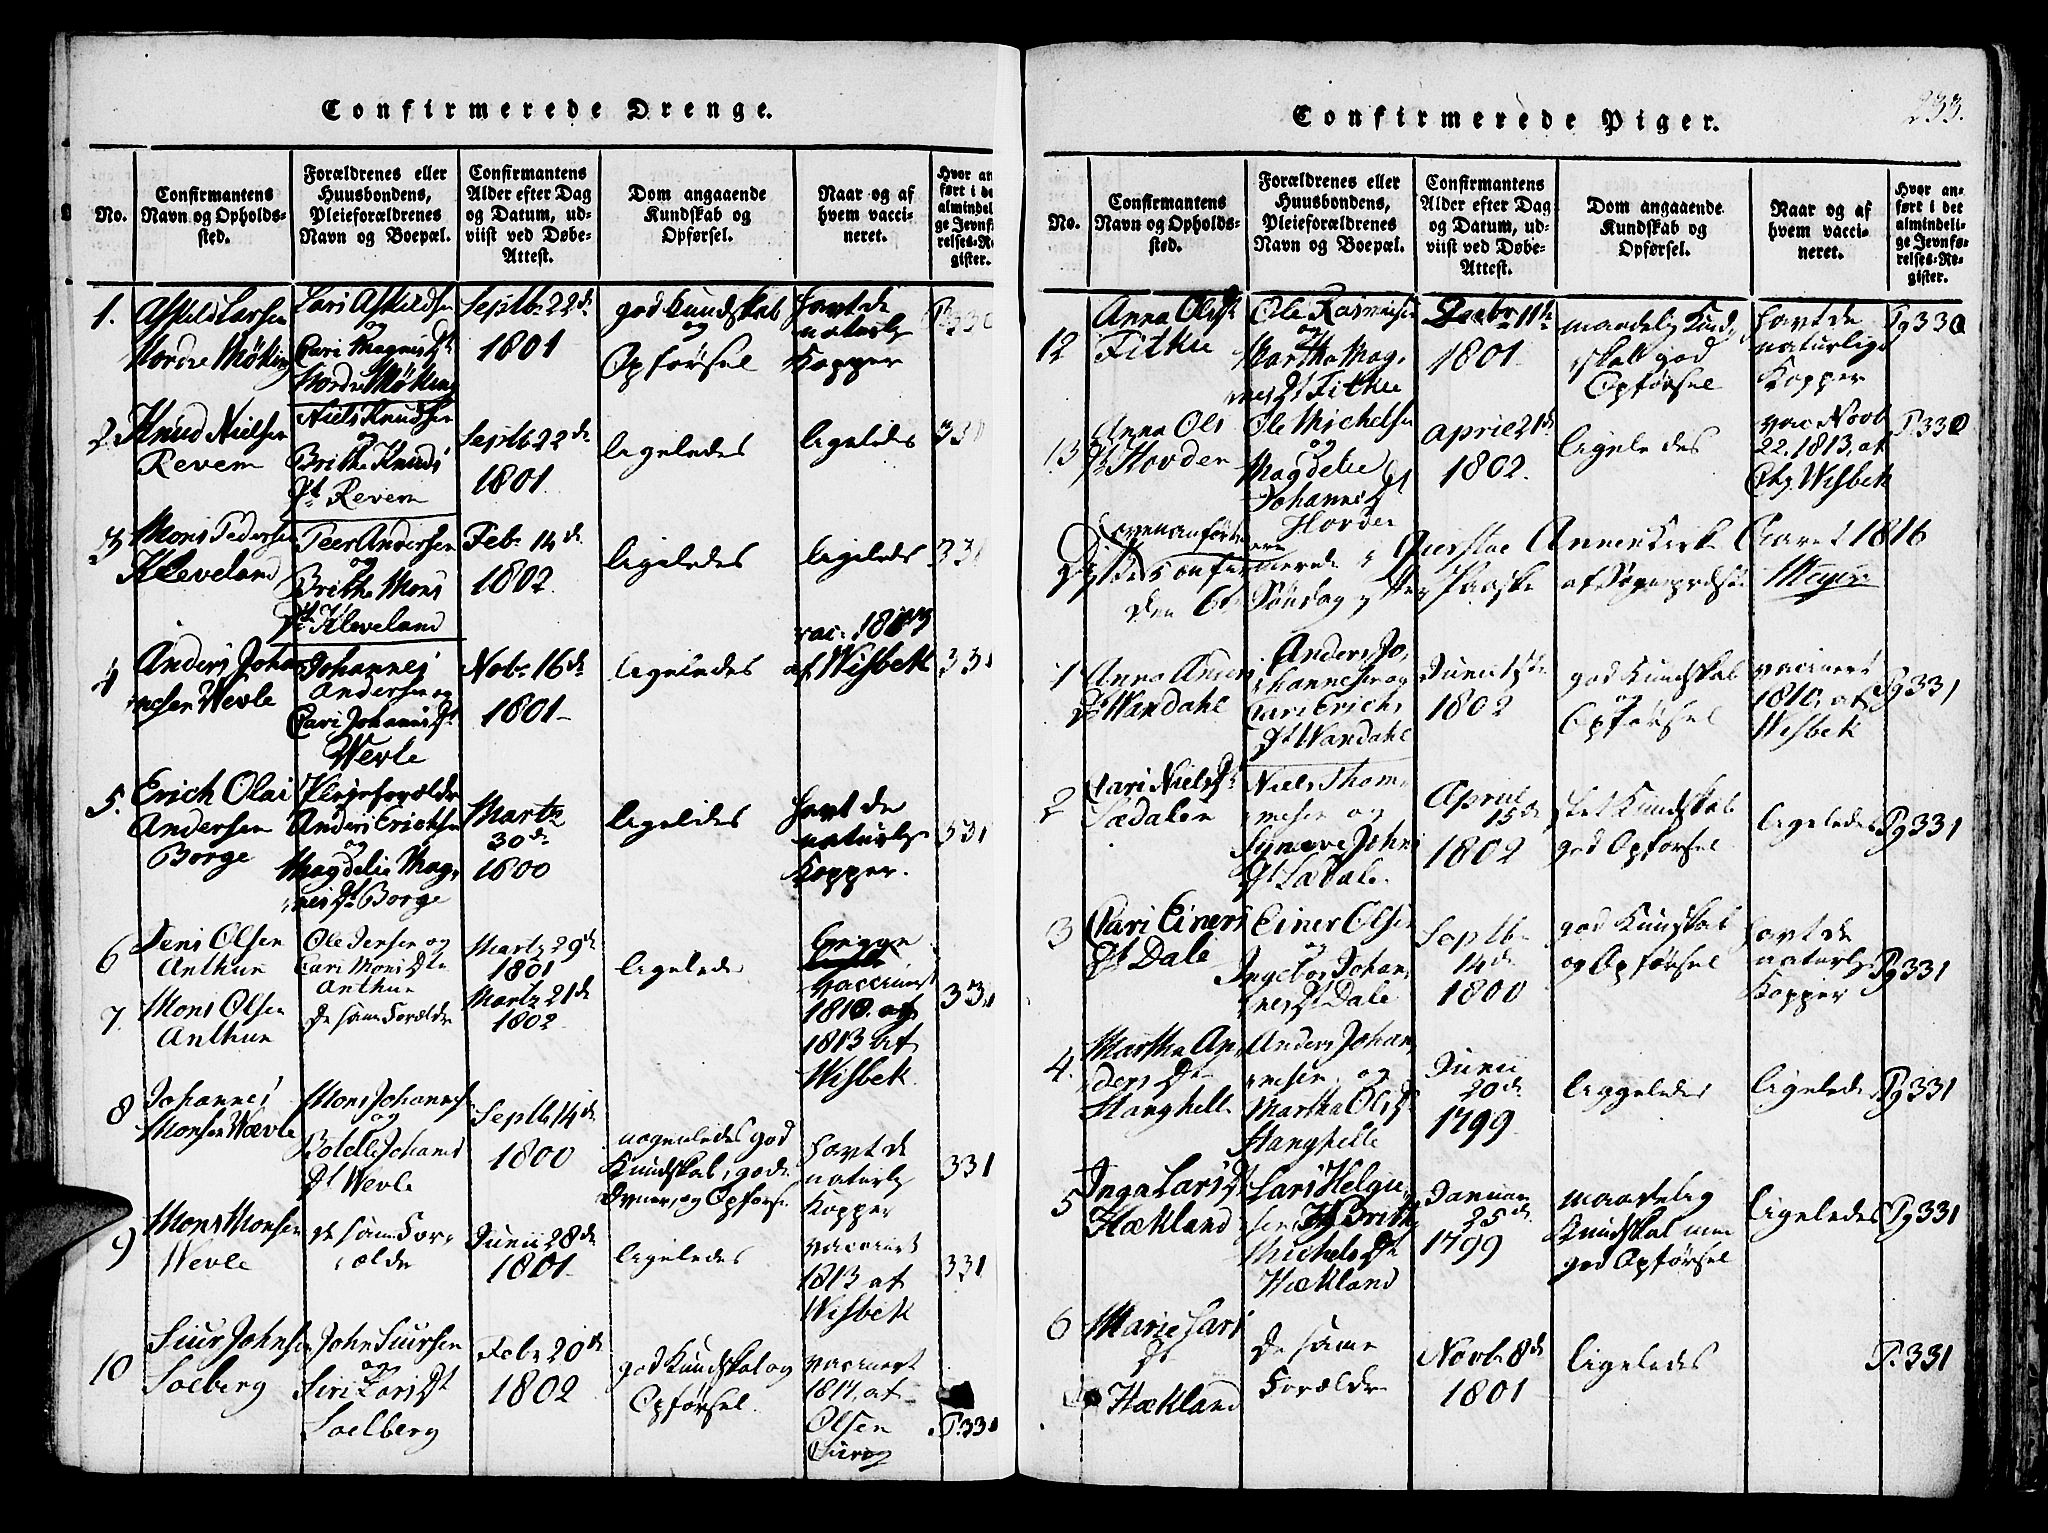 Confirmerede Drenge.
No.
Confirmantens
Navn og Opholds-
sted.
Forældrenes eller
Huusbondens,
Pleieforældrenes
Navn og Boepæl.
Confirmantens
Alder efter Dag
og Datum, ud-
viist ved Døbe-
Attest.
Dom angaaende
Kundskab og
Opførsel.
Naar og af
hvem vacci-
neret.
Hvor an
ført i de
almindel
ge Jevnf
relses-R
gister.
1.
Askild Larsen
Nordre Møking
Lars Askildsen
og
Cari Magnis Dt
Nordre Møking
Septbr 22de
1801
god Kundskab
og
Opførsel
havt de
naturlg
Kopper
2
Knud Nielsen
Revem
Niels Knudsen
og
Brithe Knuds
Dt Revem
Septb 22de
1801.
ligeledes
ligeledes
3
Mons Pedersen
Kleveland
Peer Andersen
og
Brithe Mons
Dt Kleveland
Feb. 14de
1802.
ligeledes
ligeledes
331
4
Anders Johan
nesen Wevle
Johannes
Andersen og
Cari Johanis Dt
Wevle
Nobr 16de
1801
ligeledes
vac. 1813
af Wisbek
331
5.
Erich Olai
Andersen
Borge
Pleieforældre
Anders Erichsen
og
Magdeli Mag,
nes Dt Borge
Martz
30de
1800
ligeledes
havt de
naturlg
Kopper.
331
6
Jens Olsen
Anthun
Ole Jensen og
Cari Mons Dtr
Anthun
Martz 29de
1801
ligeledes
begge
vaccineret
1813 af
Wisbek
331
7.
Mons Olsen
Anthun
de samme Forældre
Martz 21de
1802
8
Johannes
Monsen Wævle
Mons Johannes
og
Botelle Johannes
Dt Wevle
Septb 14de
1800
nogenledes god
Kundskab, gode
Evner, og Opførsel
havt de
naturlg
Kopper
331
9
Mons Monsen
Wevle
de samme For,
ældre
Junii 28de
1801
ligeledes
vaccineret
1813 af
Wisbek
331
10
Siur Johnsen
Solberg
John Siursen
og
Siri Lars Dt
Soelberg
Febr 20de
1802
god Kundskab og
Opførsel
vaccineret
1814 af
Olsen
P. 331
Confirmerede Piger.
233.
No.
Confirmantens
Navn og Opholds-
sted.
Forældrenes eller
Huusbondens,
Pleieforældrenes
Navn og Boepæl.
Confirmantens
Alder efter Dag
og Datum, ud-
viist ved Døbe-
Attest.
Dom angaaende
Kundskab og
Opførsel.
Naar og af
hvem vacci-
neret.
Hvor an-
ført i det
almindeli-
ge Jevnfø-
relses-Re-
gister.
12
Anna Ols Dt
Fitkie
Ole Rasmusen
og
Martha Mag,
nes Dt Fitkie
11te
1801
maadelig Kund,
skab god
Opførsel
havt de
naturlige
Kopper
Pg 330
13
Anna Ols
Dt Hovden
Ole Michelsen
og
Magdelie
Johannes Dt
Hovden
April 21de
1802.
ligeledes
vac Novb
22. 1813, af
Chp. Wisbek
P. 330
Ovenanførte
ere
Confirmerede i Annex Kirke Aaret 1816
den 6te Søndag efter Paaske af Sognepræsten Meyer
1
Anna Anders
Dt Wandahl
Anders Jo,
hannesen og
Cari Erichs
Dt Wandahl
Junii
1802
god Kundskab
og
Opførsel
vaccineret
1810, af
Wisbek
Pg 331
2
Cari Niels Dt
Sædalen
Niels Thom,
mesen og
Synneve Johns
Dt Sædale
April
15de
1802
slet Kundskab
god Opførsel
ligeledes
Pg 331
3
Cari Einers
Dt Dale
Einer Olsen
og
Ingebor Johan,
nes Dt Dale
Septb
14de
1800
god Kundskab
og Opførsel
havt de
naturlg
Kopper
Pg 331
4.
Martha An,
ders Dt
Hanghelle
Anders Johan,
nesen og
Martha Ols Dt
Hanghelle
Junii
20de
1799
liggeledes
ligelede
Pg 331
5
Inga Lars Dt
Hækland
Lars Helge,
sen og Brithe
Michels Dt
Hækland
Januar
25de
1799
maadelig
Kundskab men
god Opførsel
ligeledes
Pg 331
6
Marie Lars
Dt
Hækland
de samme
Forældre
Novbr 8de
1801
ligeledes
P. 331